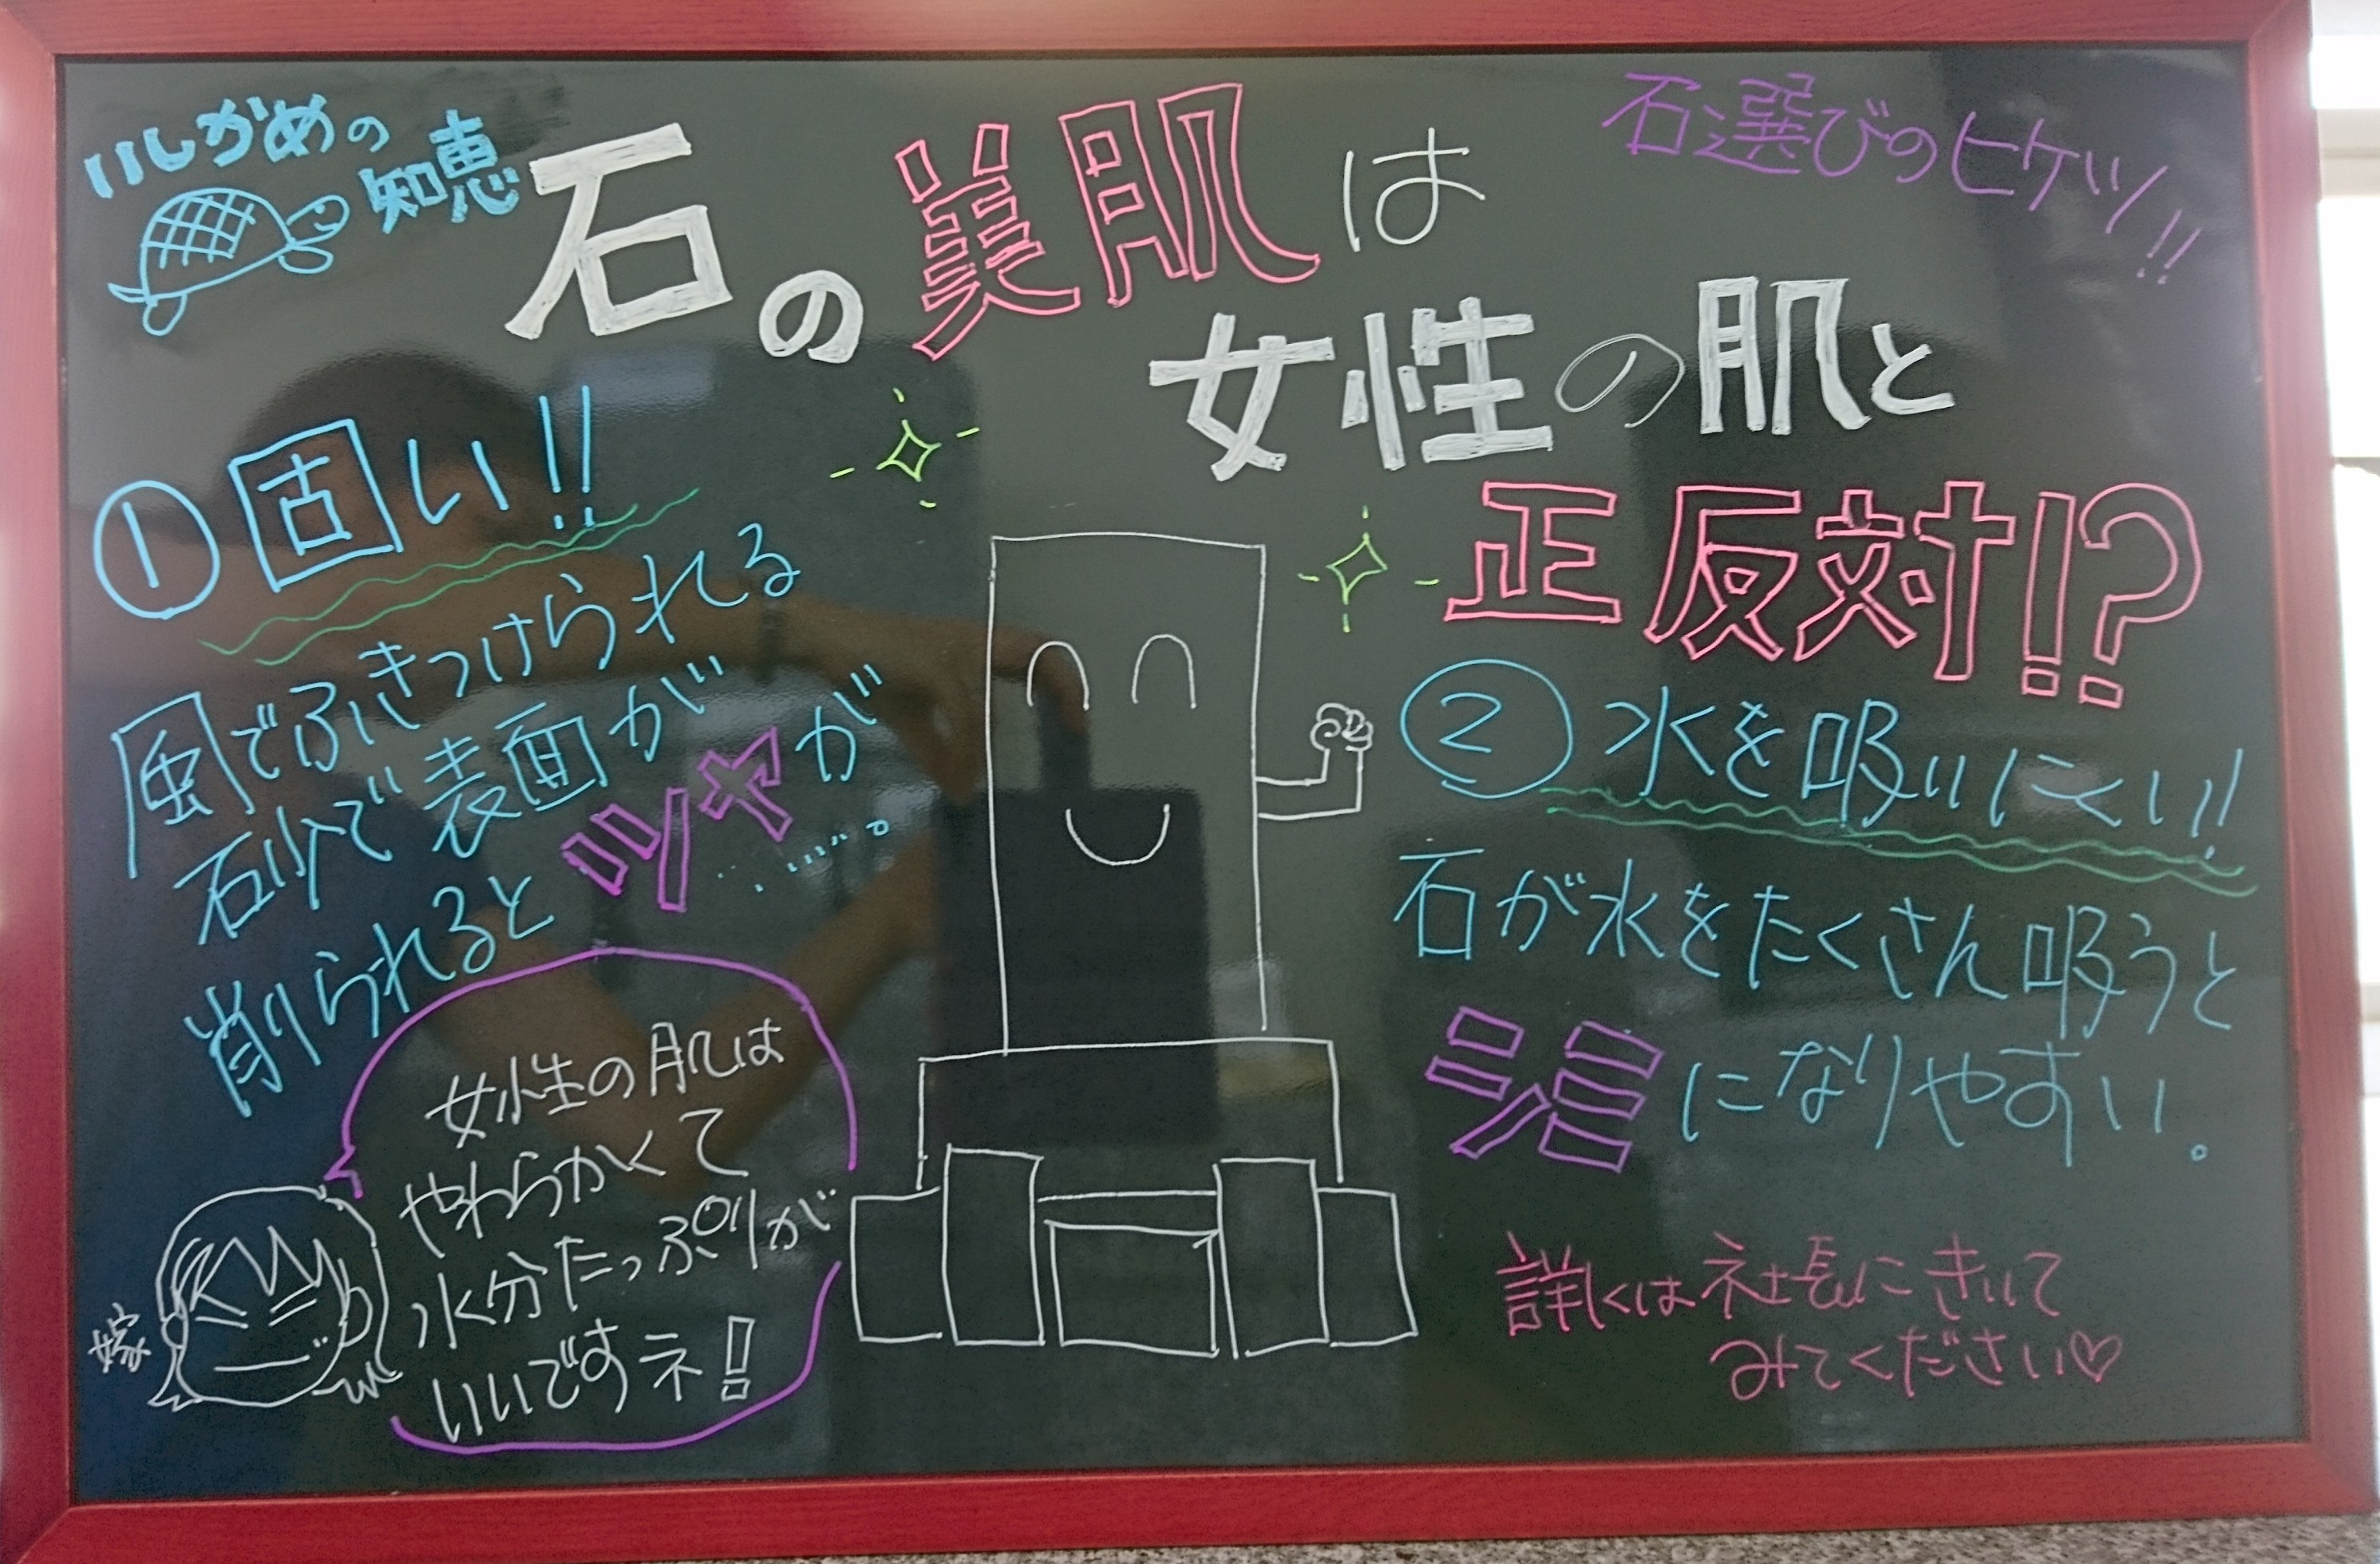 いしかめの
知恵
石選びのヒケツ!!
石の美肌は
女性の肌と
正反対!?
① 固い!!
風でふきつけられる
石砂で表面が
削られるとツヤが……。
② 水を吸いにくい!!
石が水をたくさん吸うと
シミになりやすい。
女性の肌は
やわらかくて
水分たっぷりが
いいですネ!
嫁
詳しくは社長にきいて
みてください♡